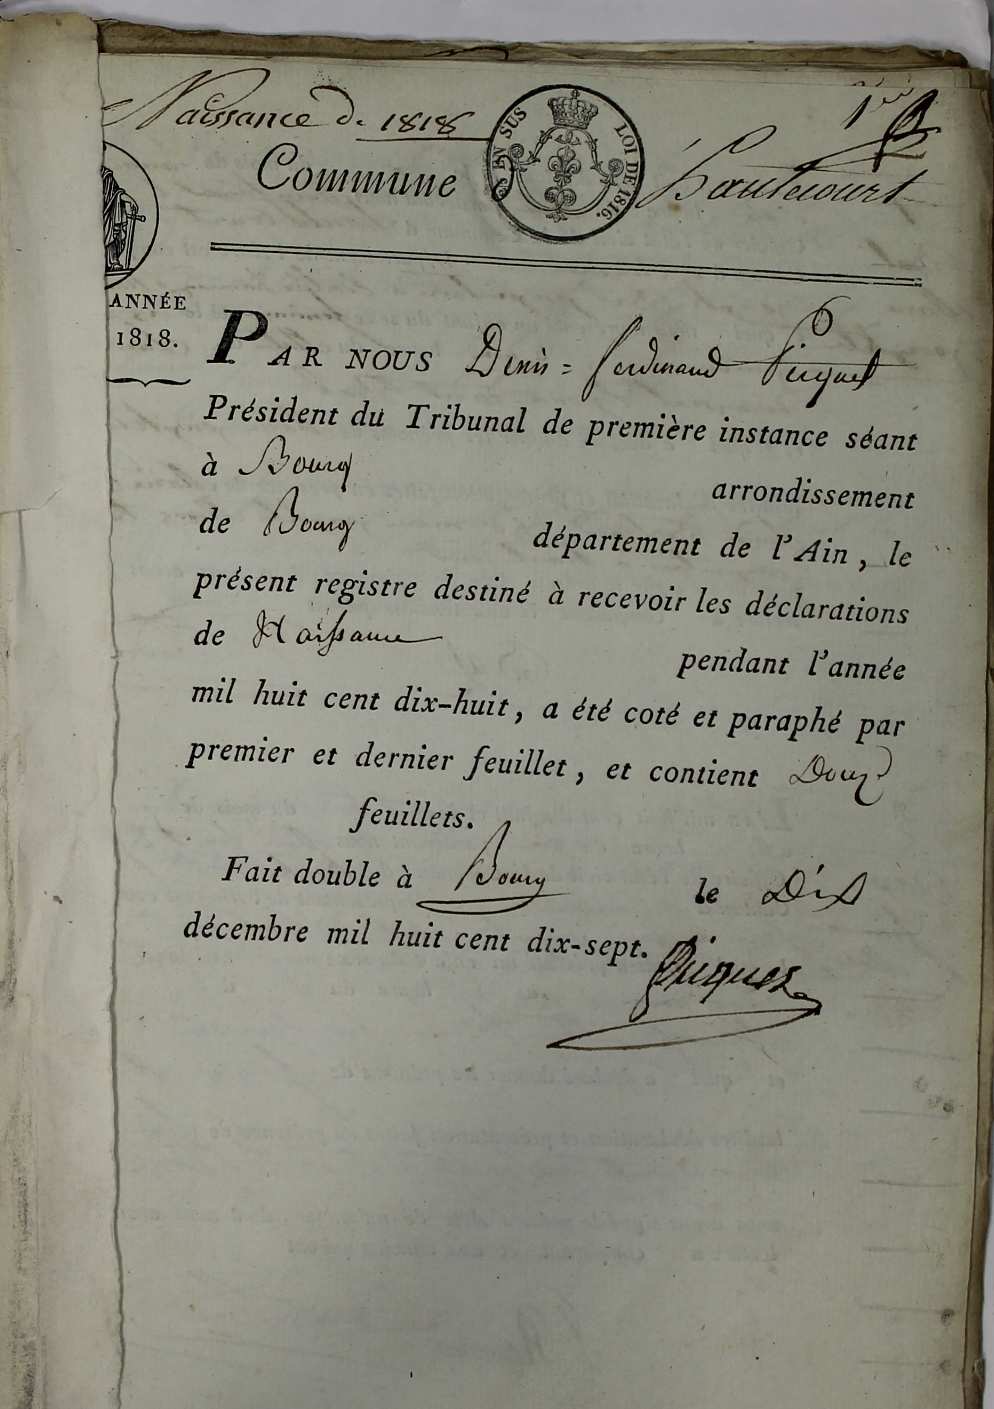 Naissance de 1818
1er
Commune
hautecourt
S EN SUS
LOI DE 1816.
ANNÉE
1818.
PAR NOUS Denis = ferdinand Piquet
Président du Tribunal de première instance séant
à Bourg
arrondissement
de Bourg
département de l'Ain, le
présent registre destiné à recevoir les déclarations
de Naissance
pendant l'année
mil huit cent dix-huit, a été coté et paraphé par
premier et dernier feuillet, et contient Douze
feuillets.
Fait double à Bourg le Dix
décembre mil huit cent dix-sept.
Piquet